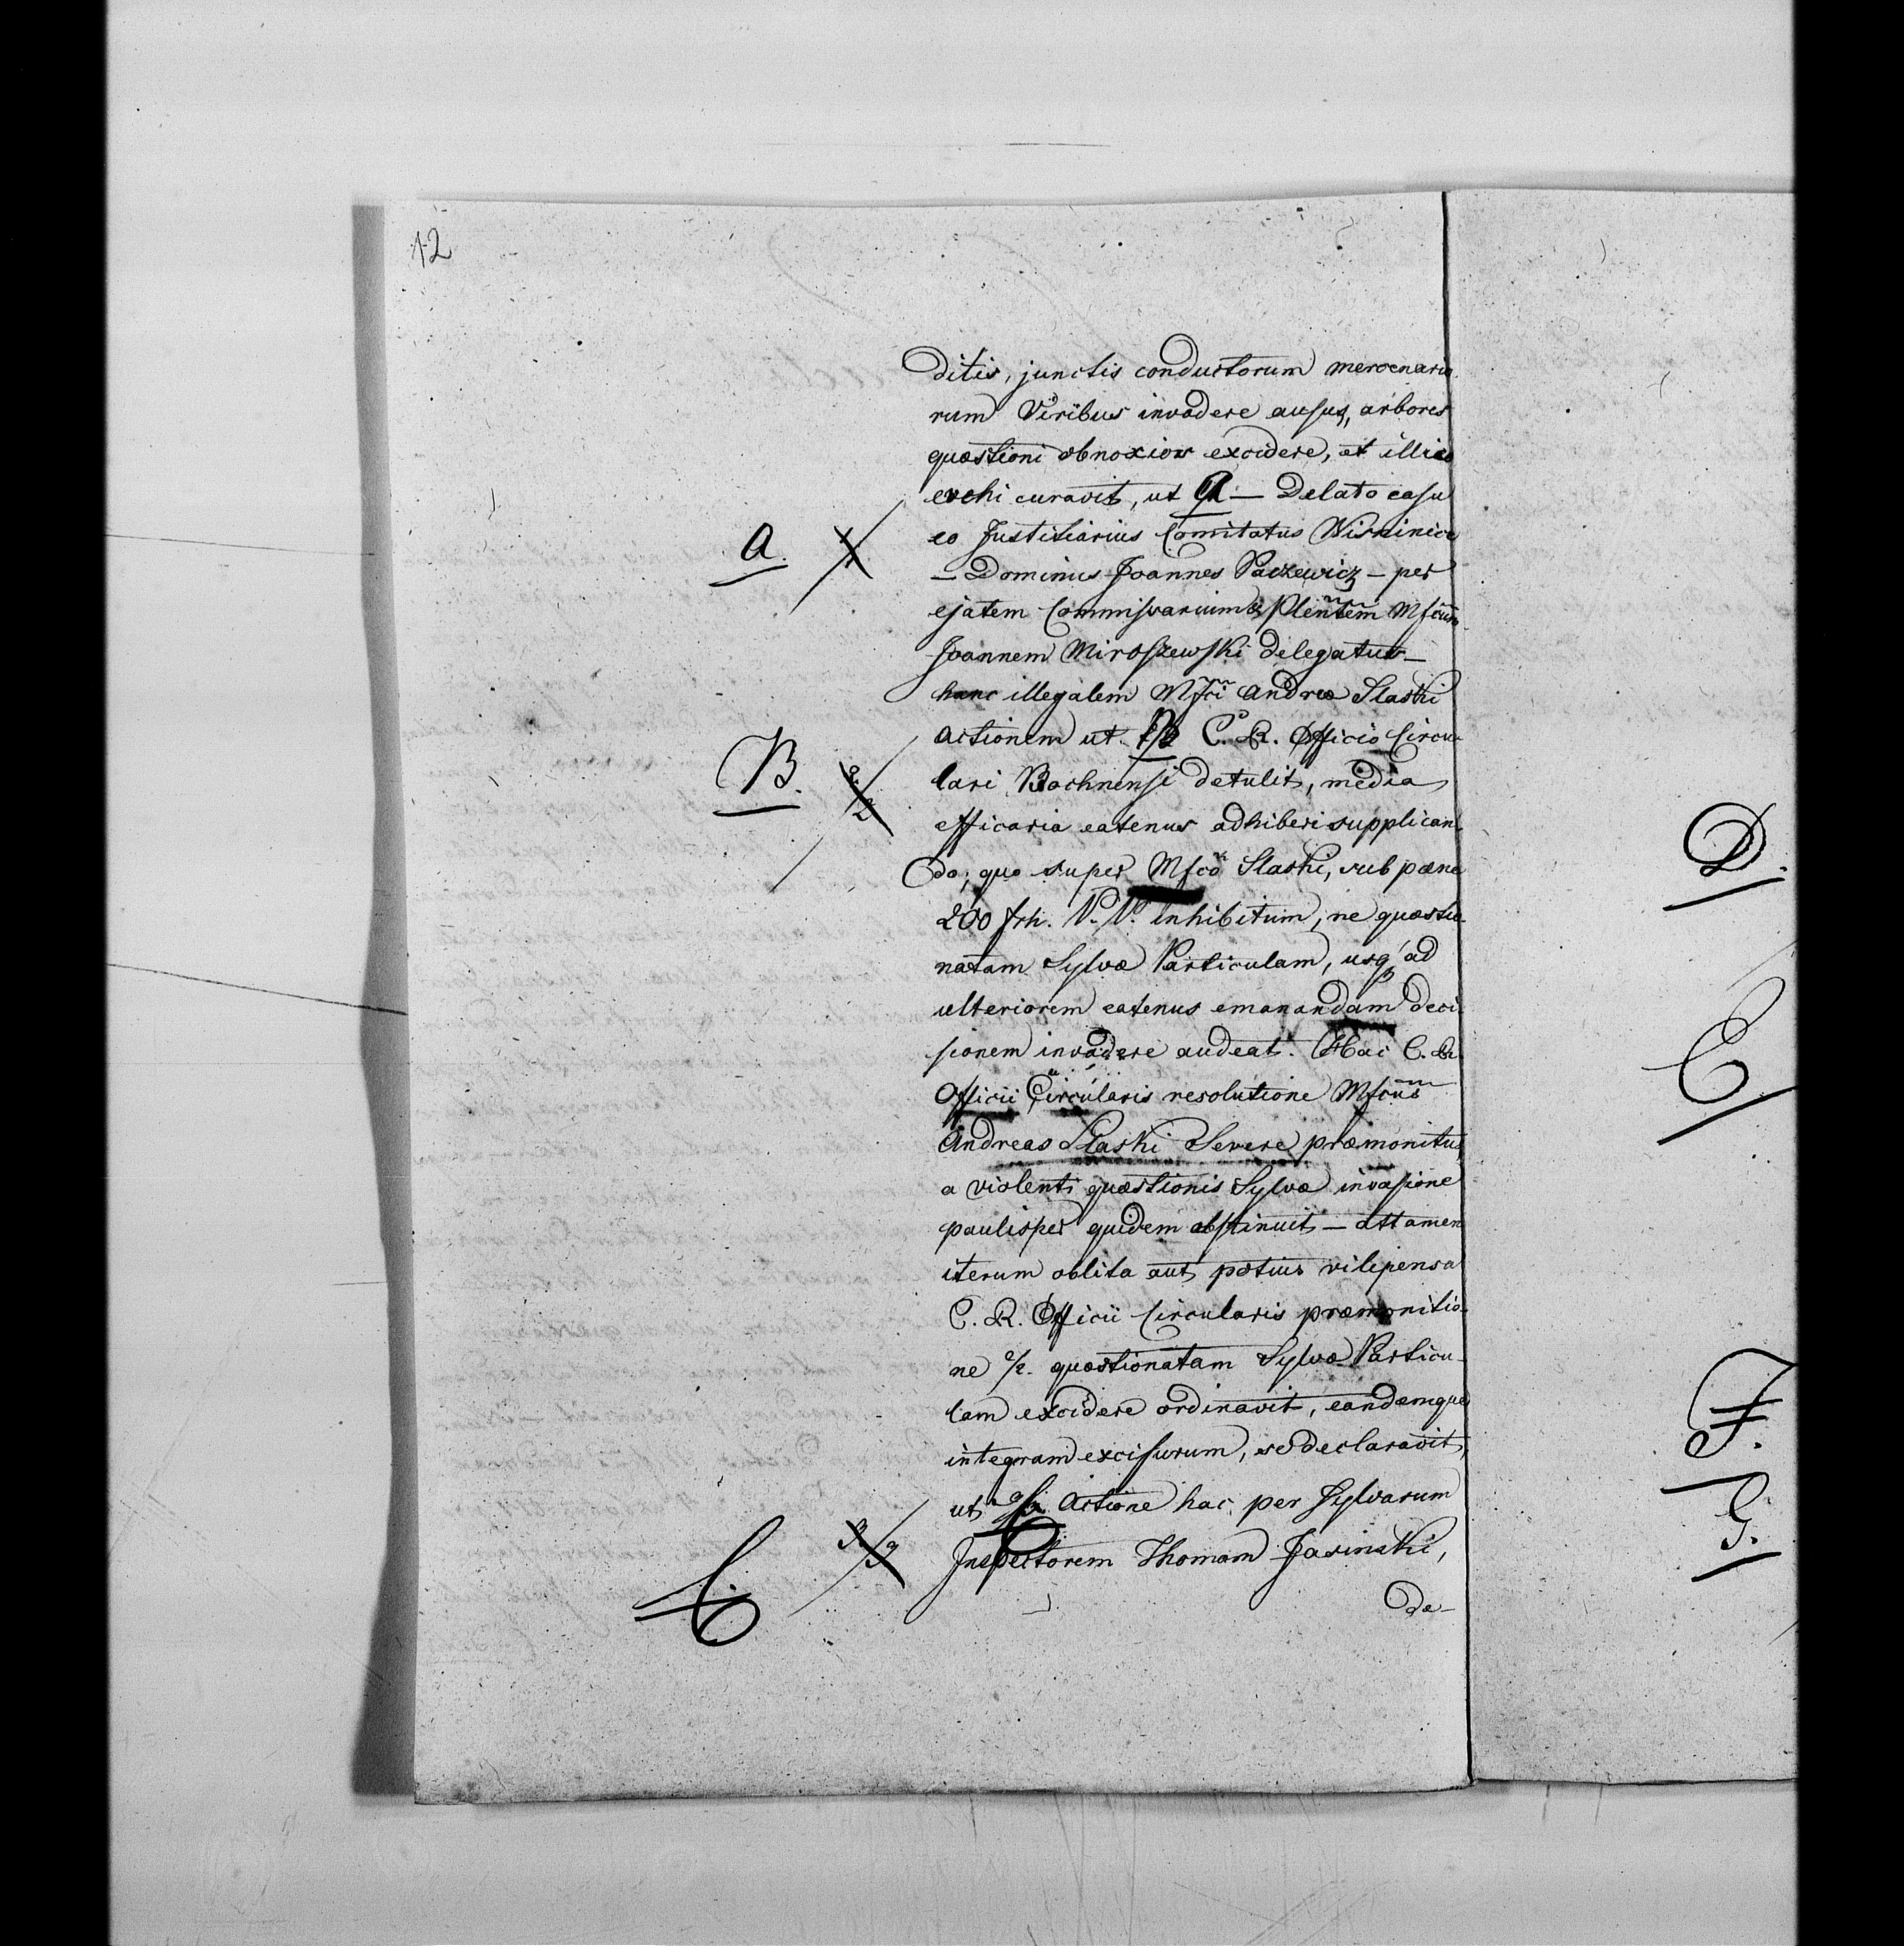 12
ditis, junctis conductorum mercenario
rum Viribus invadere ausus, arbores
quæstioni obnoxios excidere, et illico
evehi curavit, ut A — Delato casu
A.
eo Justitiarius Comitatus Wisnicie
— Dominus Joannes Paczewicz — per
ejatem Commissarium & Plentem Mfcum
Joannem Miroszewski delegatus —
hanc illegalem Mfci Andreæ Slaski
actionem ut B C. R. Officio Circu
B.
lari Bochnensi detulit, media
efficacia eatenus adhiberi supplican
do, quo super Mfco Slaski, sub pæna
200 frh. V. V. inhibitum, ne quæstio
natam Sylvæ Particulam, usq ad
ulteriorem eatenus emanandam deci
sionem invadere audeat. Hac C. R.
Officii Circularis resolutione Mfcus
Andreas Slaski Severe præmonitus
a violenti quæstionis Sylvæ invasione
paulisper quidem abstinuit — attamen
iterum oblita aut potius vilipensa
C. R. Officii Circularis præmonitio
ne quæstionatam Sylvæ Particu
lam excidere ordinavit, eandemque
integram excisurum, se declaravit,
ut Actione hac per Sylvarum
C.
Inspectorem Thomam Jasinski,
de-
D.
E
F.
G.